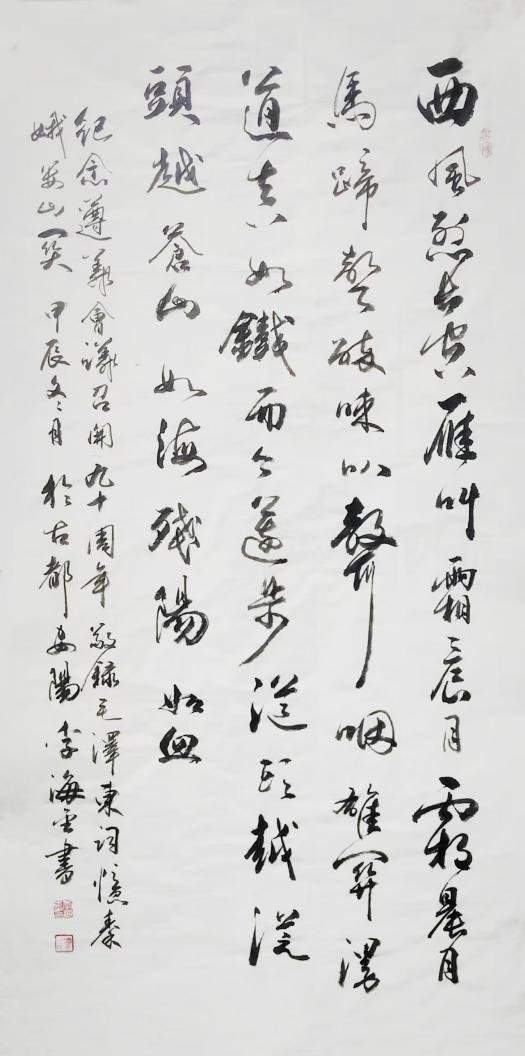 西風烈長空雁叫霜晨月霜晨月
馬蹄聲碎喇叭聲咽雄關漫
道真如鐵而今邁步從頭越從
頭越蒼山如海殘陽如血
紀念遵義會議召開九十周年敬錄毛澤東詞憶秦
娥婁山關 甲辰冬月於古都安陽李海雲書